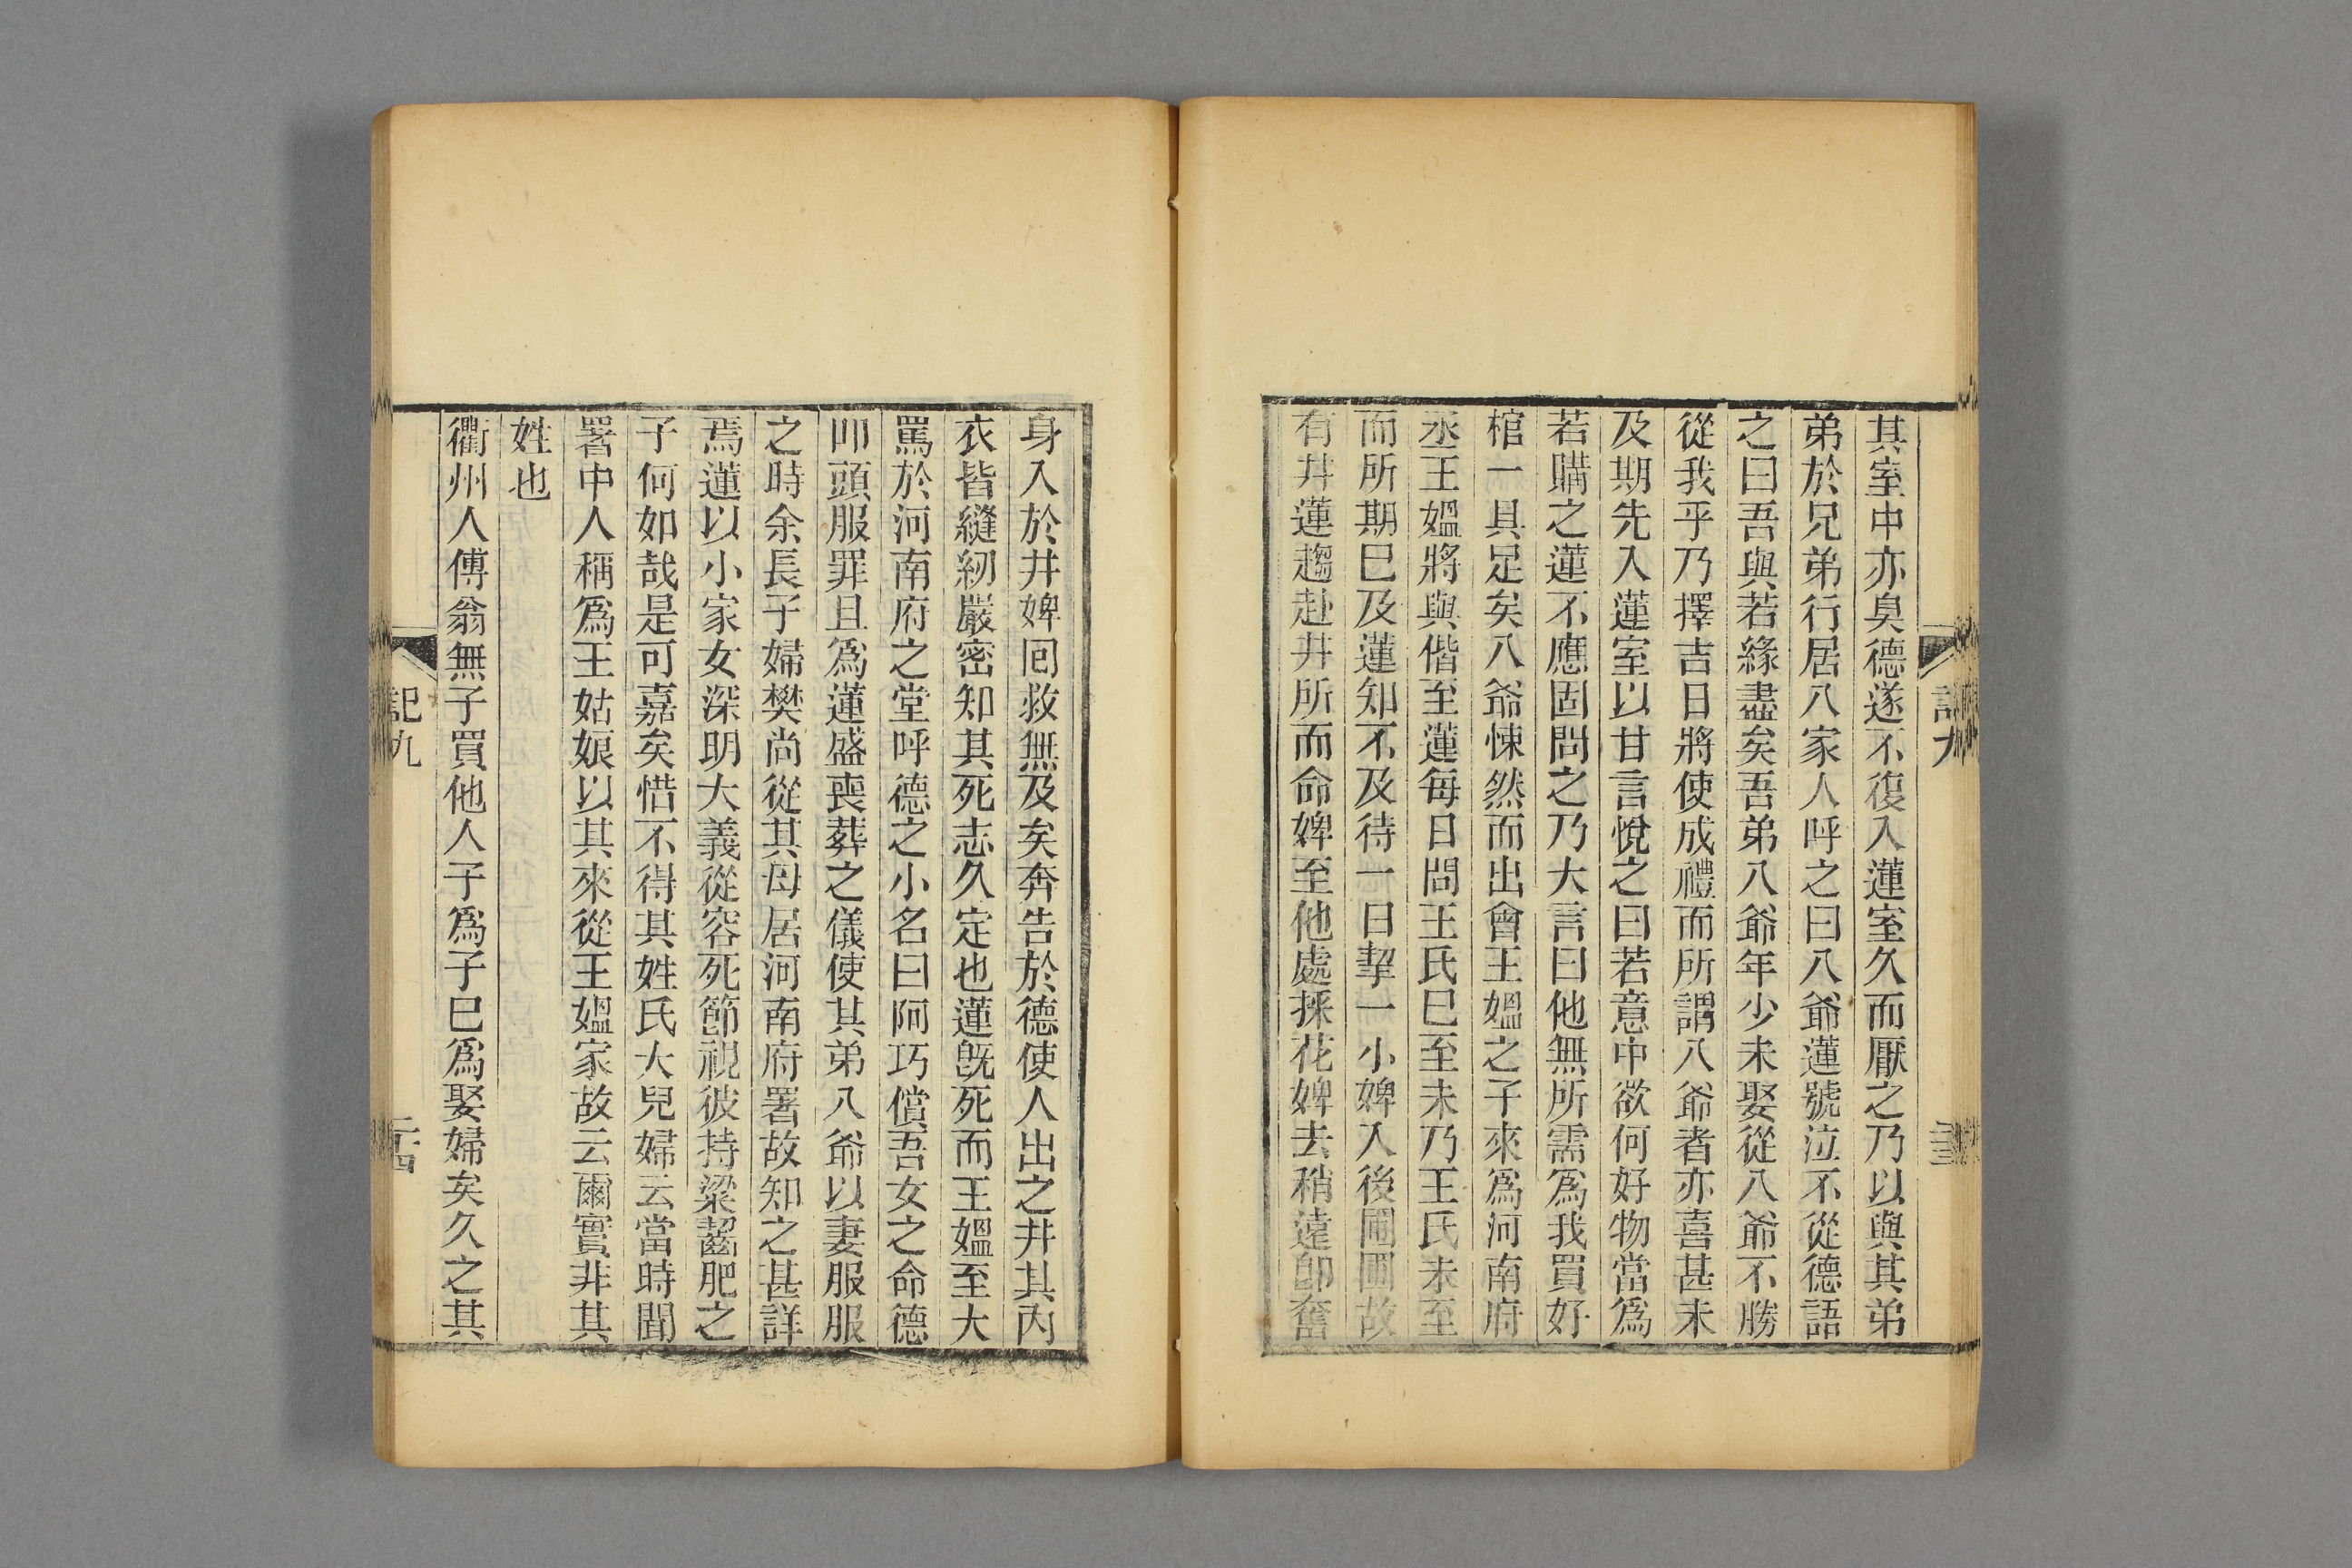 其室中亦臭德遂不復入蓮室久而厭之乃以與其弟
弟於兄弟行居八家人呼之曰八爺蓮號泣不從德語
之曰吾與若緣盡矣吾弟八爺年少未娶從八爺不勝
從我乎乃擇吉日將使成禮而所謂八爺者亦喜甚未
及期先入蓮室以甘言悅之曰若意中欲何好物當爲
若購之蓮不應固問之乃大言曰他無所需爲我買好
棺一具足矣八爺悚然而出會王媼之子來爲河南府
丞王媼將與偕至蓮每日問王氏巳至未乃王氏未至
而所期巳及蓮知不及待一日挈一小婢入後圃圃故
有井蓮趨赴井所而命婢至他處採花婢去稍遠卽奮
身入於井婢回救無及矣奔告於德使人出之井其內
衣皆縫紉嚴密知其死志久定也蓮旣死而王媼至大
罵於河南府之堂呼德之小名曰阿巧償吾女之命德
叩頭服罪且爲蓮盛喪葬之儀使其弟八爺以妻服服
之時余長子婦樊尚從其母居河南府署故知之甚詳
焉蓮以小家女深明大義從容死節視彼持粱齧肥之
子何如哉是可嘉矣惜不得其姓氏大兒婦云當時聞
署中人稱爲王姑娘以其來從王媼家故云爾實非其
姓也
衢州人傅翁無子買他人子爲子巳爲娶婦矣久之其
記九